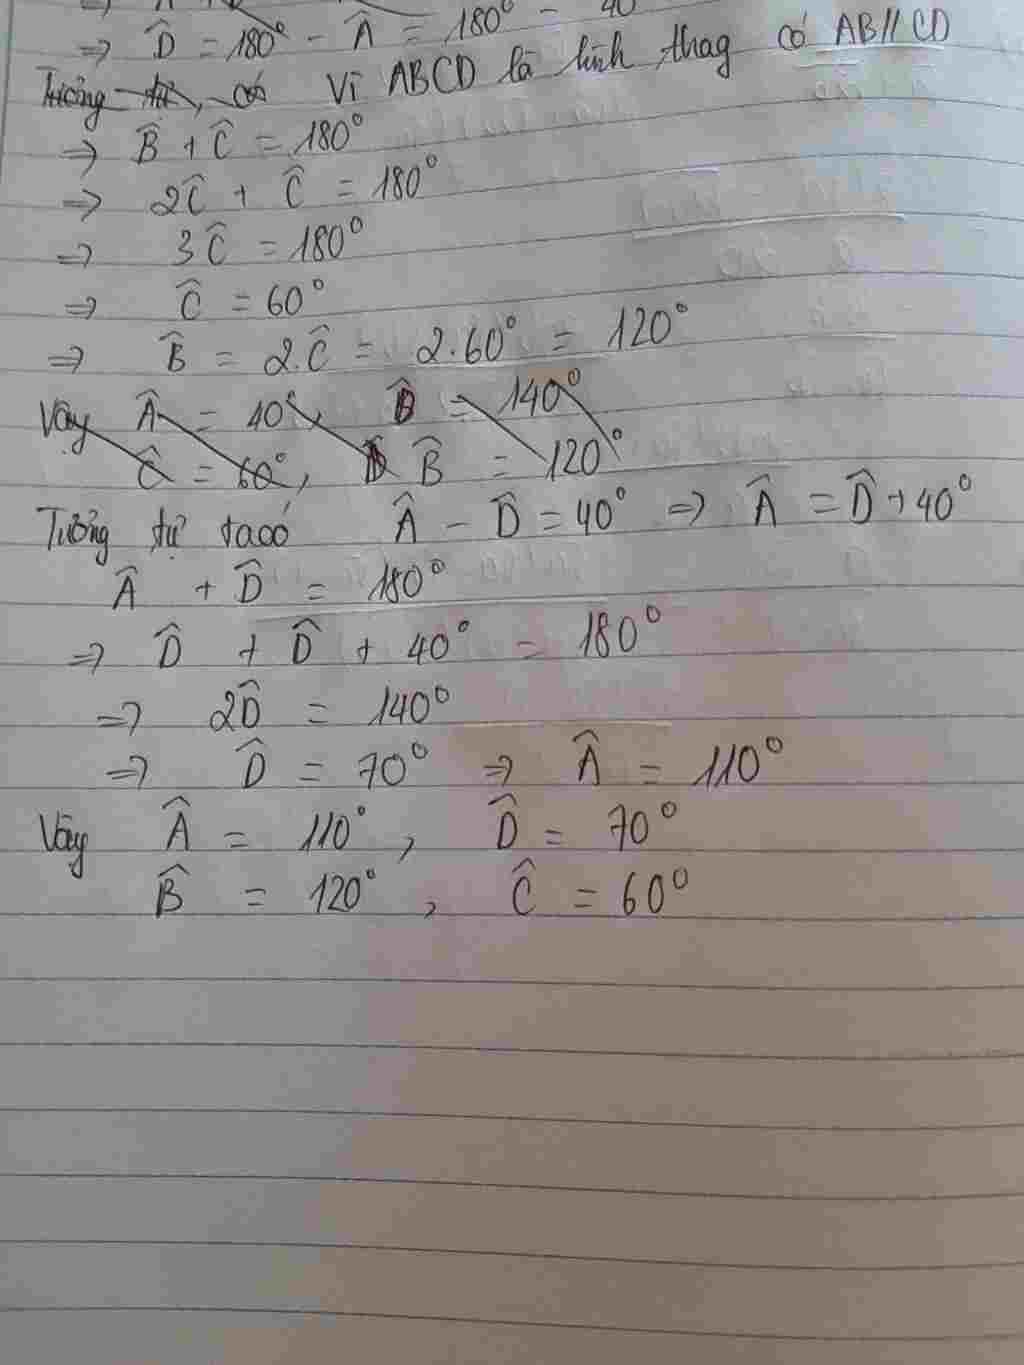 ⇒ D̂ = 180° - Â = 180° - 40
Tương tự, có Vì ABCD là hình thag có AB//CD
⇒ B̂ + Ĉ = 180°
⇒ 2Ĉ + Ĉ = 180°
⇒ 3Ĉ = 180°
⇒ Ĉ = 60°
⇒ B̂ = 2.Ĉ = 2.60° = 120°
Vậy Â = 40°, D̂ = 140°
Ĉ = 60°, B̂ = 120°
Tương tự ta có Â - D̂ = 40° ⇒ Â = D̂ + 40°
Â + D̂ = 180°
⇒ D̂ + D̂ + 40° = 180°
⇒ 2D̂ = 140°
⇒ D̂ = 70° ⇒ Â = 110°
Vậy Â = 110°, D̂ = 70°
B̂ = 120°, Ĉ = 60°